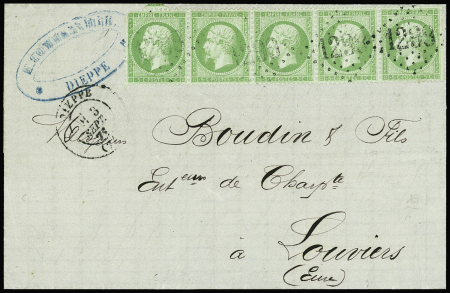 EMPIRE FRANC. EMPIRE FRANC. EMPIRE FRANC. EMPIRE FRANC. EMPIRE FRANC.
1293 1293
DIEPPE
DIEPPE
3
SEPT.
Boudin & Fils
Entrs de Charpte
à Louviers
(Eure)